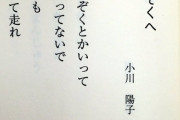 ぞくへ
小川　陽子
ぞくとかいって
ってないで
も
て走れ